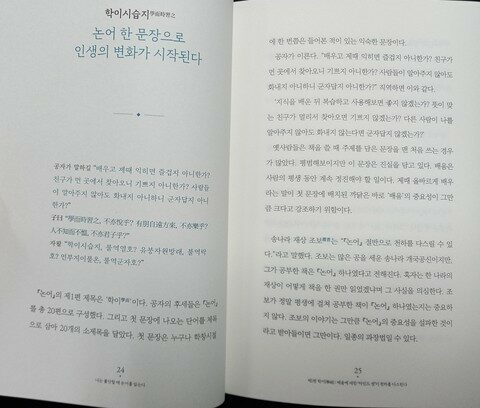 학이시습지學而時習之
논어 한 문장으로
인생의 변화가 시작된다
공자가 말하길 "배우고 제때 익히면 즐겁지 아니한가?
친구가 먼 곳에서 찾아오니 기쁘지 아니한가? 사람들
이 알아주지 않아도 화내지 아니하니 군자답지 아니
한가?"
子曰 "學而時習之, 不亦悅乎? 有朋自遠方來, 不亦樂乎?
人不知而不慍, 不亦君子乎?"
자왈 "학이시습지, 불역열호? 유붕자원방래, 불역락
호? 인부지이불온, 불역군자호?"
『논어』의 제1편 제목은 '학이學而'이다. 공자의 후세들은 『논어』
를 총 20편으로 구성했다. 그리고 첫 문장에 나오는 단어를 제목
으로 삼아 20개의 소제목을 달았다. 첫 문장은 누구나 학창시절
24
나는 불안할 때 논어를 읽는다
에 한 번쯤은 들어본 적이 있는 익숙한 문장이다.
공자가 이른다. "배우고 제때 익히면 즐겁지 아니한가? 친구가
먼 곳에서 찾아오니 기쁘지 아니한가? 사람들이 알아주지 않아도
화내지 아니하니 군자답지 아니한가?" 직역하면 이와 같다.
'지식을 배운 뒤 복습하고 사용해보면 좋지 않겠는가? 뜻이 맞
는 친구가 멀리서 찾아오면 기쁘지 않겠는가? 다른 사람이 나를
알아주지 않아도 화내지 않는다면 군자답지 않겠는가?'
옛사람들은 책을 쓸 때 주제를 담은 문장을 맨 처음 쓰는 경우
가 많았다. 평범해보이지만 이 문장은 진심을 담고 있다. 배움은
사람의 평생 동안 계속 정진해야 한다는 말이다. 제때 올바르게 배우
라는 말이 첫 문장에 배치된 까닭은 바로 '배움'의 중요성이 그만
큼 크다고 강조하기 위함이다.
송나라 재상 조보趙普는 "『논어』 절반으로 천하를 다스릴 수 있
다."라고 말했다. 조보는 많은 공을 세운 송나라 개국공신이지만,
그가 공부한 책은 『논어』 하나였다고 전해진다. 혹자는 한 나라의
재상이 어떻게 책을 한 권만 읽었겠냐며 그 사실을 의심했다. 조
보가 정말 평생에 걸쳐 공부한 책이 『논어』 하나였는지는 중요하
지 않다. 조보의 이야기는 그만큼 『논어』의 중요성을 설파한 것이
라고 받아들이면 그만이다. 일종의 과장법일 수 있다.
25